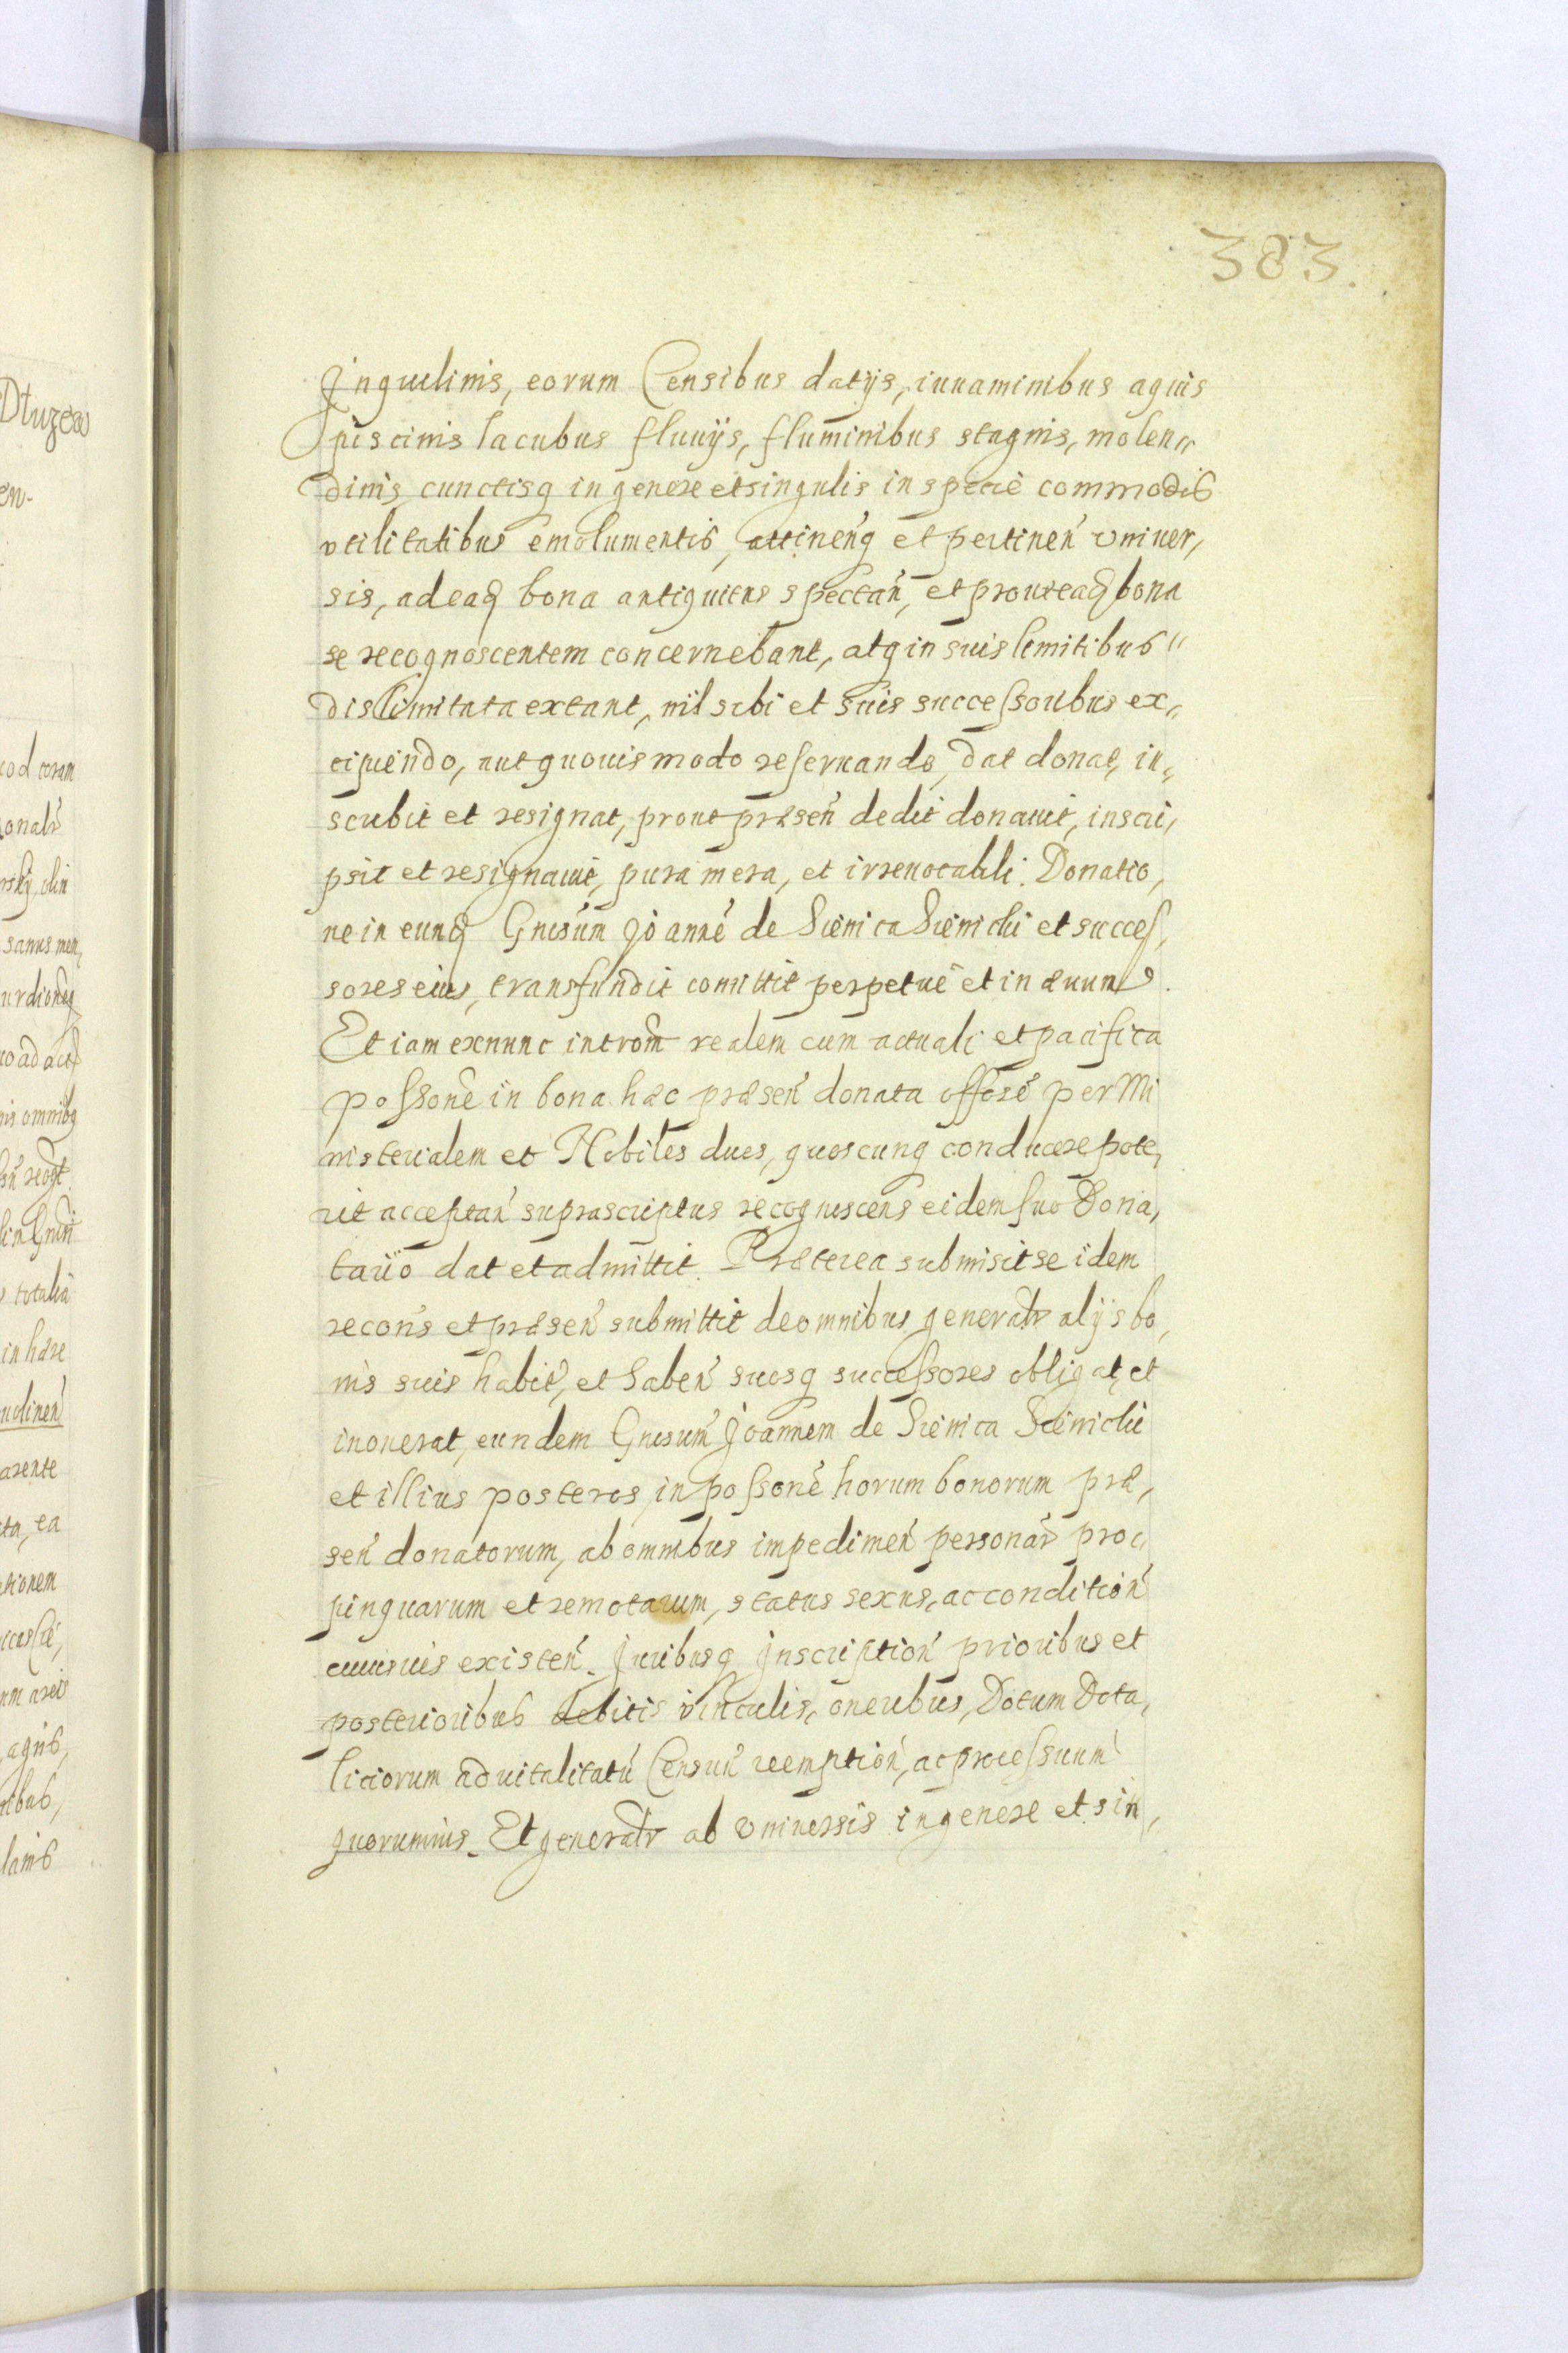 383.
Inquilinis, eorum Censibus datijs, iuuaminibus aquis
piscinis lacubus fluuijs, fluminibus stagnis, molen„
dinis cunctisq in genere et singulis in specie commodis
vtilitatibus emolumentis, attineñq et pertineñ vniuer,
sis, ad eaq bona antiquitus spectañ, et prout eaq bona
se recognoscentem concernebant, atq in suis limitibus „
dislimitata extant, nil sibi et suis successoribus ex„
cipiendo, aut quouis modo reseruando, dat donat, in„
scribit et resignat, prout præseñ dedit donauit, inscri,
psit et resignauit, pura mera, et irreuocabili Donatio,
ne in eunq Gnisum Joanne de Sienica Sienicki et succes,
sores eius, transfundit comittit perpetue et in æuum.
Et iam exnunc introm̃ realem cum actuali et pacifica
possone in bona hæc præseñ donata offere per Mi
nisterialem et Nobiles dues, quoscunq conducere pote,
rit acceptañ suprascriptus recognoscens eidem suo Dona,
tario dat et admittit. Præterea submisit se idem
recons et præseñ submittit de omnibus generatr alijs bo,
nis suis habit, et habeñ suosq successores obligat, et
inonerat, eundem Gnisum Joannem de Sienica Sienicki
et illius posteros, in possone horum bonorum præ,
señ donatorum, ab omnibus impedimeñ personar pro„
pinquarum et remotarum, status sexus, ac condition̄
cuiusuis existeñ. Juribusq Inscription̄ prioribus et
posterioribus debitis vinculis, oneribus, Dotum Dota,
liciorum aduitalitatu Censuu reemption̄, ac processuum
quorumuis. Et generatr ab vniuersis in genere et sin,